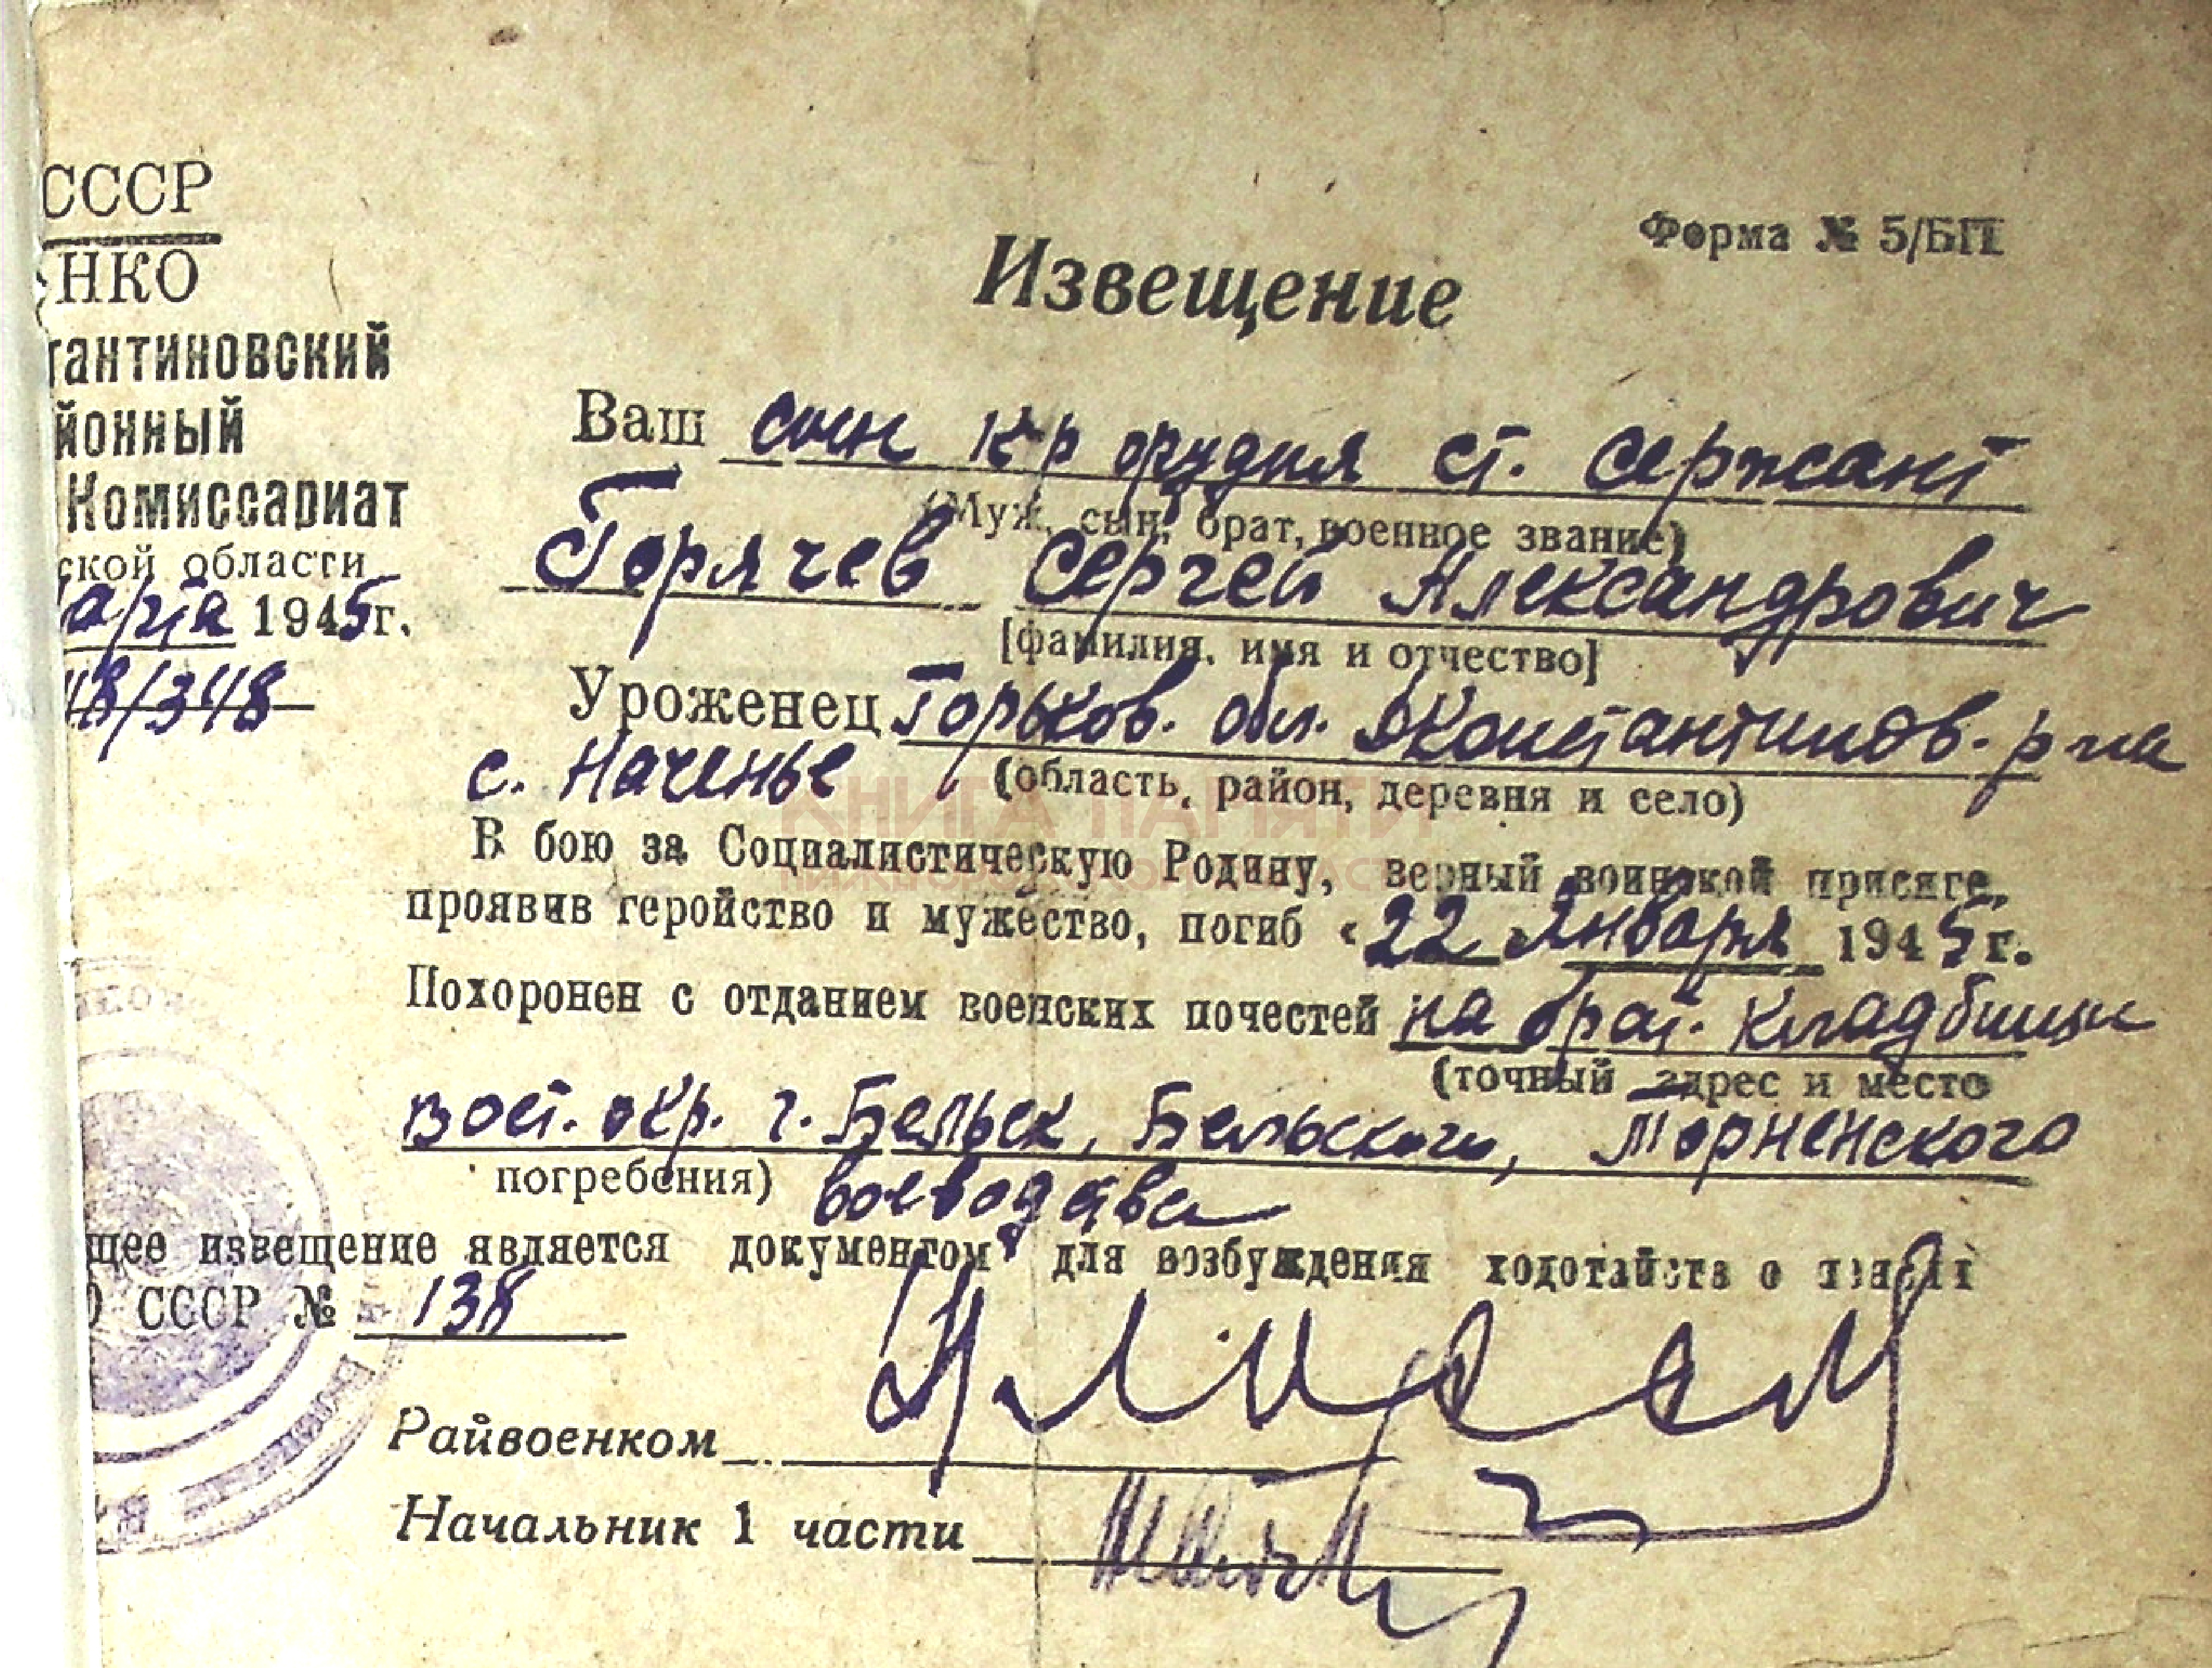 СССР
НКО
тантиновский
йонный
Комиссариат
ской области
арта 1945г.
48/348
Форма № 5/БП
Извещение
Ваш сын к-р орудия ст. сержант
(Муж, сын, брат, военное звание)
Горячев Сергей Александрович
[фамилия, имя и отчество]
Уроженец Горьков. обл. Константинов. р-на
с. Наченье (область, район, деревня и село)
КНИГА ПАМЯТИ
В бою за Социалистическую Родину, верный воинской присяге,
проявив геройство и мужество, погиб «22 января 1945г.
Похоронен с отданием военских почестей на брат. кладбище
(точный адрес и место
вост. окр. г. Бельск, Бельского,
погребения) воеводства
щее извещение является документом для возбуждения ходотайств о
О СССР № 138
Райвоенком
Начальник 1 части